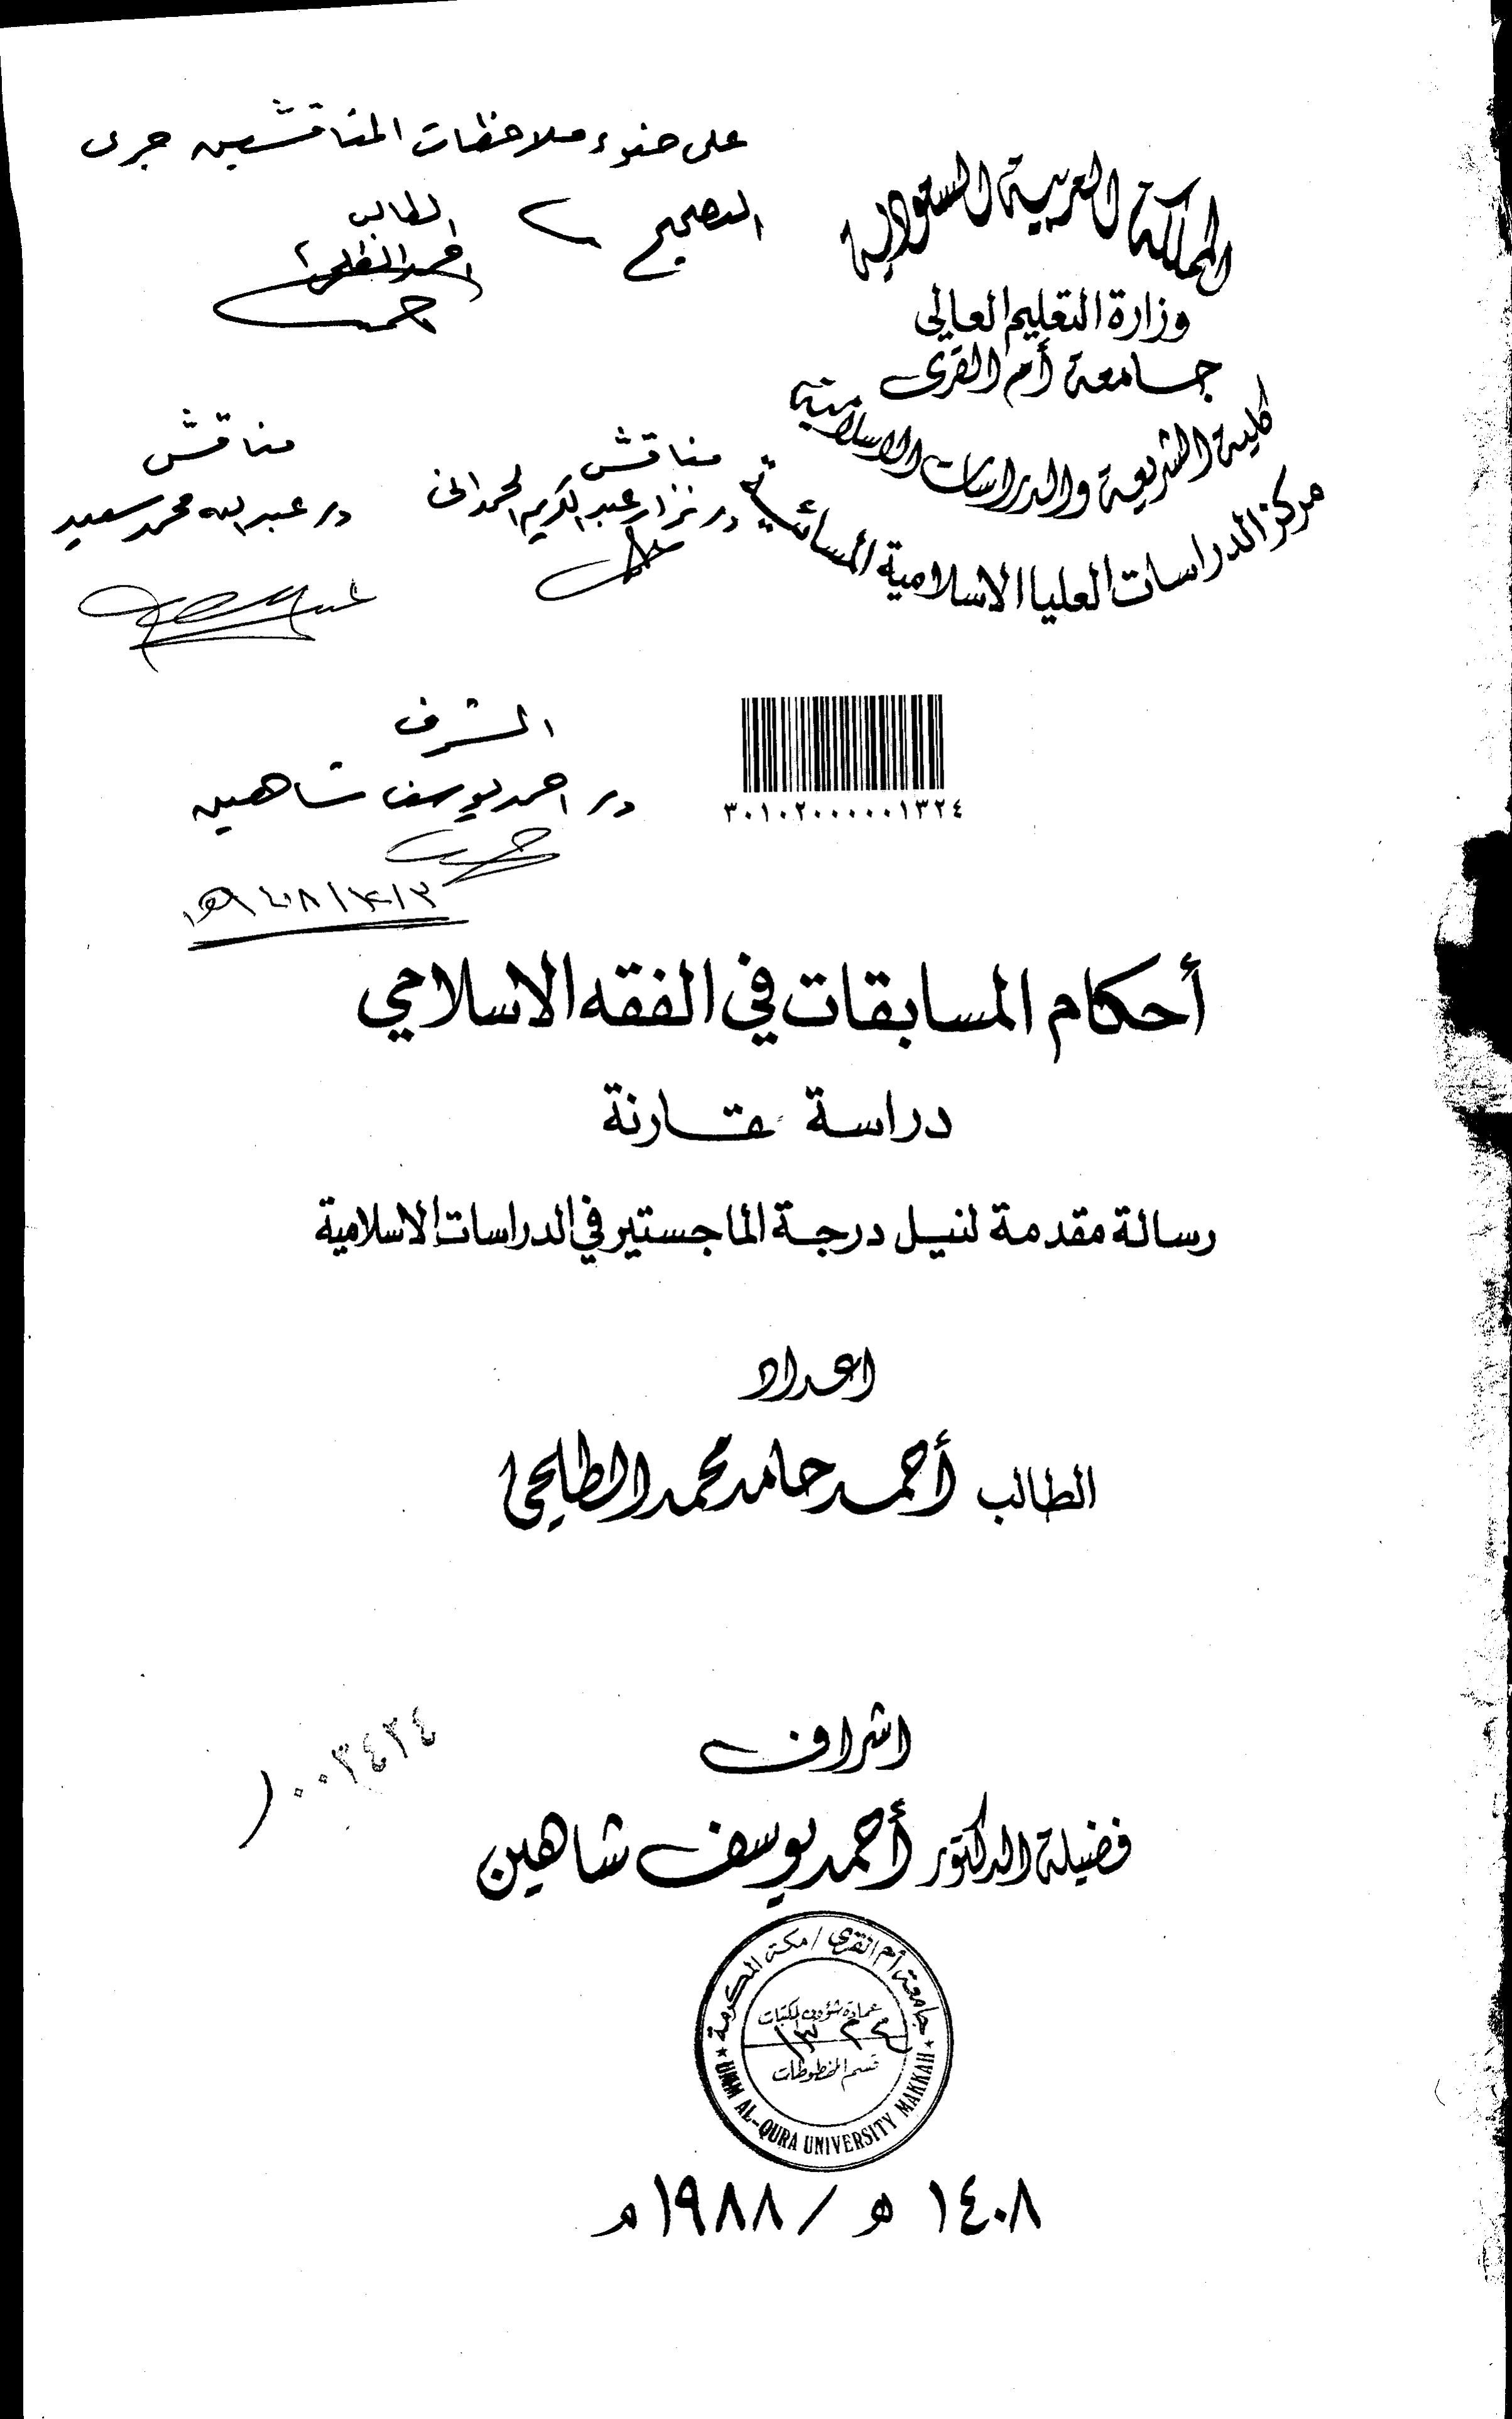 المملكة العربية السعودية
وزارة التعليم العالى
جامعة أم القرى
كلية الشريعة والدراسات الاسلامية
مركز الدراسات العليا الاسلامية المسائية
على ضوء ملاحظات المناقشين جرى
التصحيح
الطالب
احمد الطلحى
مناقش
د/ نزار عبد الكريم الحمدانى
مناقش
د/ عبد الله محمد سعيد
المشرف
د/ احمد يوسف شاهين
٣٠١٠٢٠٠٠٠٠١٣٢٤
أحكام المسابقات في الفقه الاسلامي
دراسة مقارنة
رسالة مقدمة لنيل درجة الماجستير في الدراسات الاسلامية
اعداد
الطالب أحمد حامد محمد الطلحى
اشراف
٠٠٣٤٢٤
فضيلة الدكتور أحمد يوسف شاهين
جامعة أم القرى / مكة المكرمة
عمادة شؤون المكتبات
قسم المخطوطات
UMM AL-QURA UNIVERSITY MAKKAH
١٤٠٨ هـ / ١٩٨٨ م